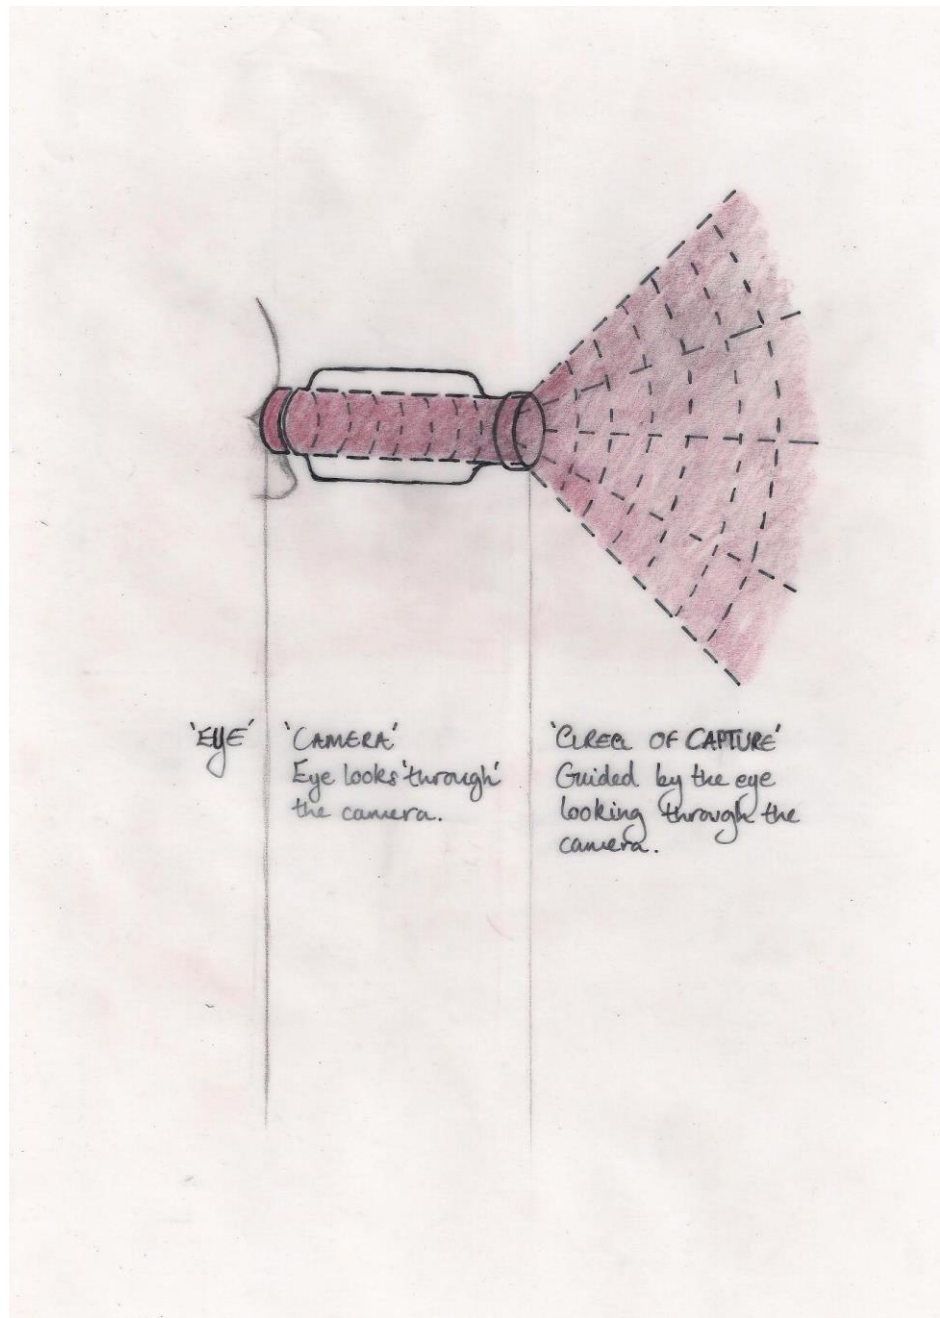 'EYE'
'CAMERA'
Eye looks 'through'
the camera.
'AREA OF CAPTURE'
Guided by the eye
looking through the
camera.